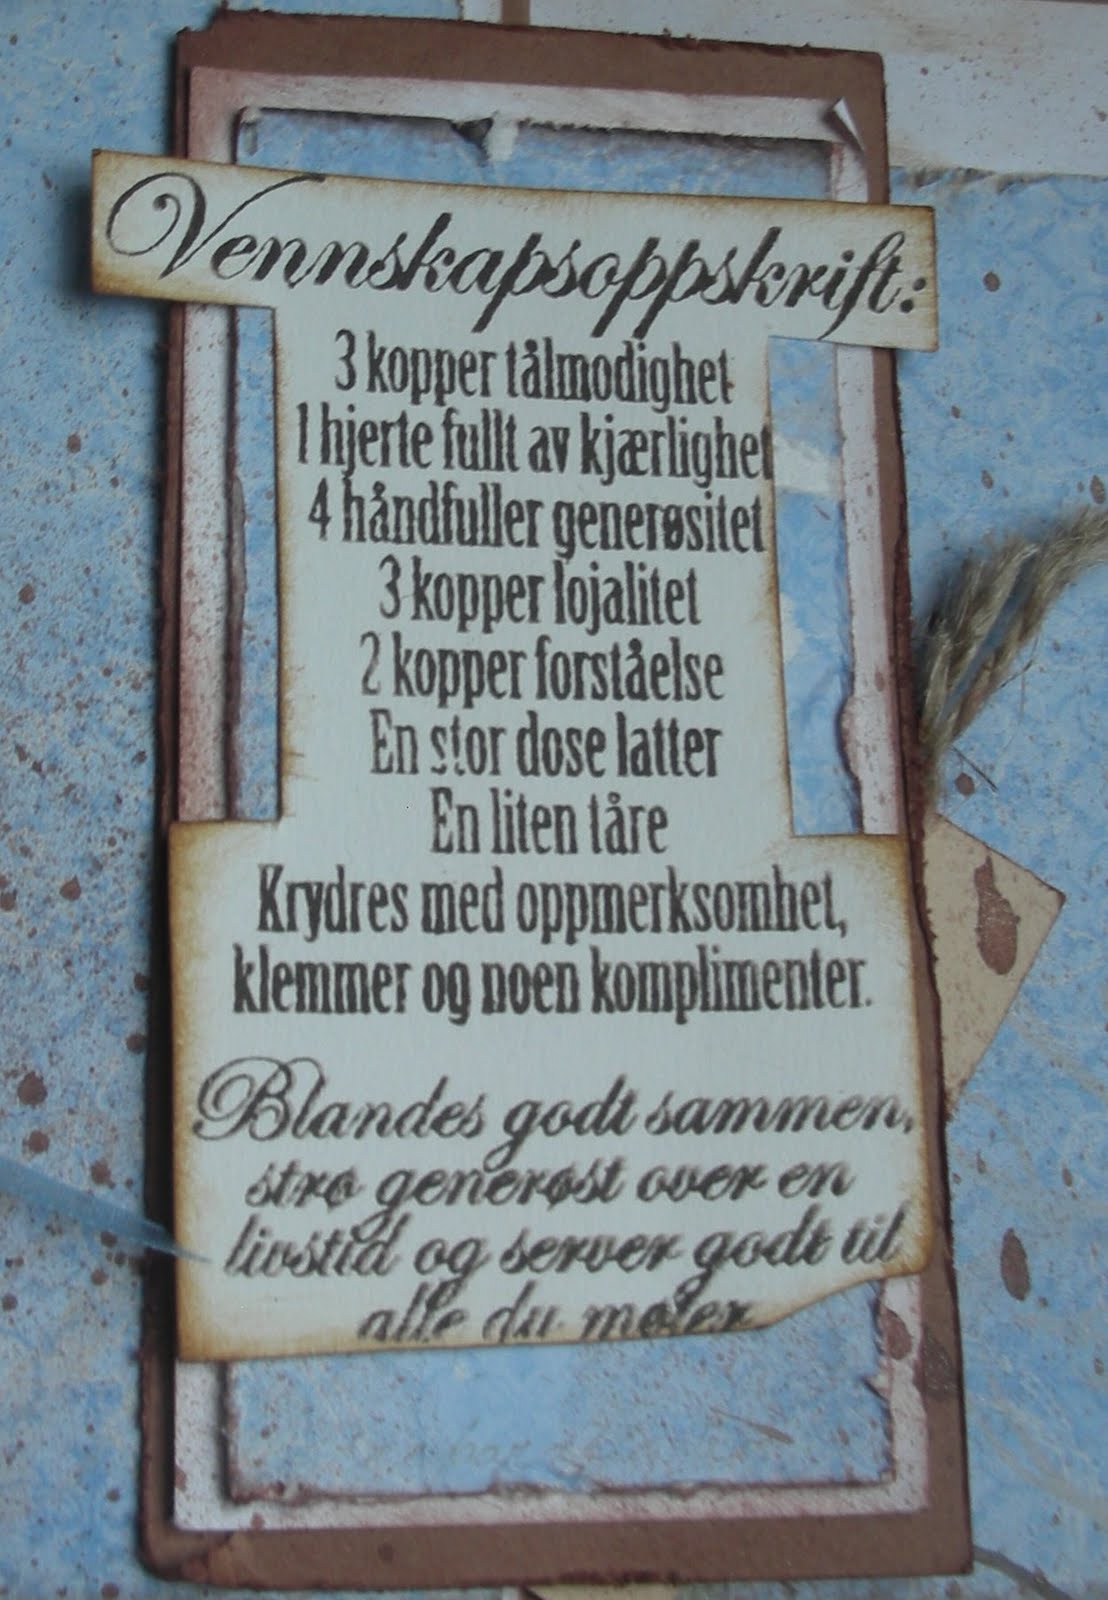 Vennskapsoppskrift:
3 kopper tålmodighet
1 hjerte fullt av kjærlighet
4 håndfuller generøsitet
3 kopper lojalitet
2 kopper forståelse
En stor dose latter
En liten tåre
Krydres med oppmerksomhet,
klemmer og noen komplimenter.
Blandes godt sammen,
strø generøst over en
livstid og server godt til
alle du møter